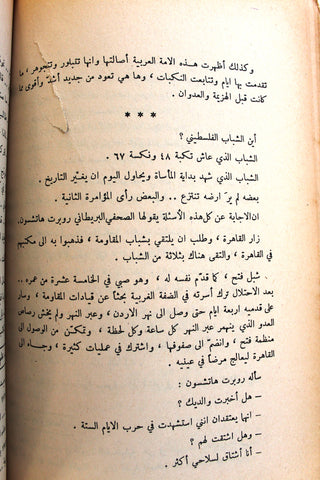 وكذلك أظهرت هذه الامة العربية أصالتها وانها تتبلور وتتجوهر ، ما
تقدمت بها ايام وتتابعت النكبات ، وها هي تعود من جديد أشد وأقوى مما
كانت قبل الهزيمة والعدوان .
* * *
أين الشباب الفلسطيني ؟
الشباب الذي عاش نكبة ٤٨ ونكسة ٦٧ .
الشباب الذي شهد بداية المأساة ويحاول اليوم ان يغيّر التاريخ .
بعضه لم يرَ ارضه تنتزع .. والبعض رأى المؤامرة الثانية .
ان الاجابة عن كل هذه الأسئلة يقولها الصحفي البريطاني روبرت هاتشسون .
زار القاهرة ، وطلب ان يلتقي بشباب المقاومة ، فذهبوا به الى مكتبهم
في القاهرة ، والتقى هناك بثلاثة من الشباب .
شبل فتح ، كما قدّم نفسه له ، وهو صبي في الخامسة عشرة من عمره ..
بعد الاحتلال ترك أسرته في الضفة الغربية بحثاً عن قيادات المقاومة ، وسار
على قدميه اربعة ايام حتى وصل الى نهر الاردن ، وعبر النهر ولم يخش رصاص
العدو الذي ينهمر عبر النهر كل ساعة وكل لحظة ، وتمكّن من الوصول الى
منظمة فتح ، وانضمّ الى صفوفها ، واشترك في عمليات كثيرة ، وجاء الى
القاهرة ليعالج مرضاً في عينيه .
سأله روبرت هاتشسون :
– هل أخبرت والديك ؟
– انهما يعتقدان انني استشهدت في حرب الايام الستة .
– وهل اشتقت لهم ؟
– أنا أشتاق لسلاحي أكثر .